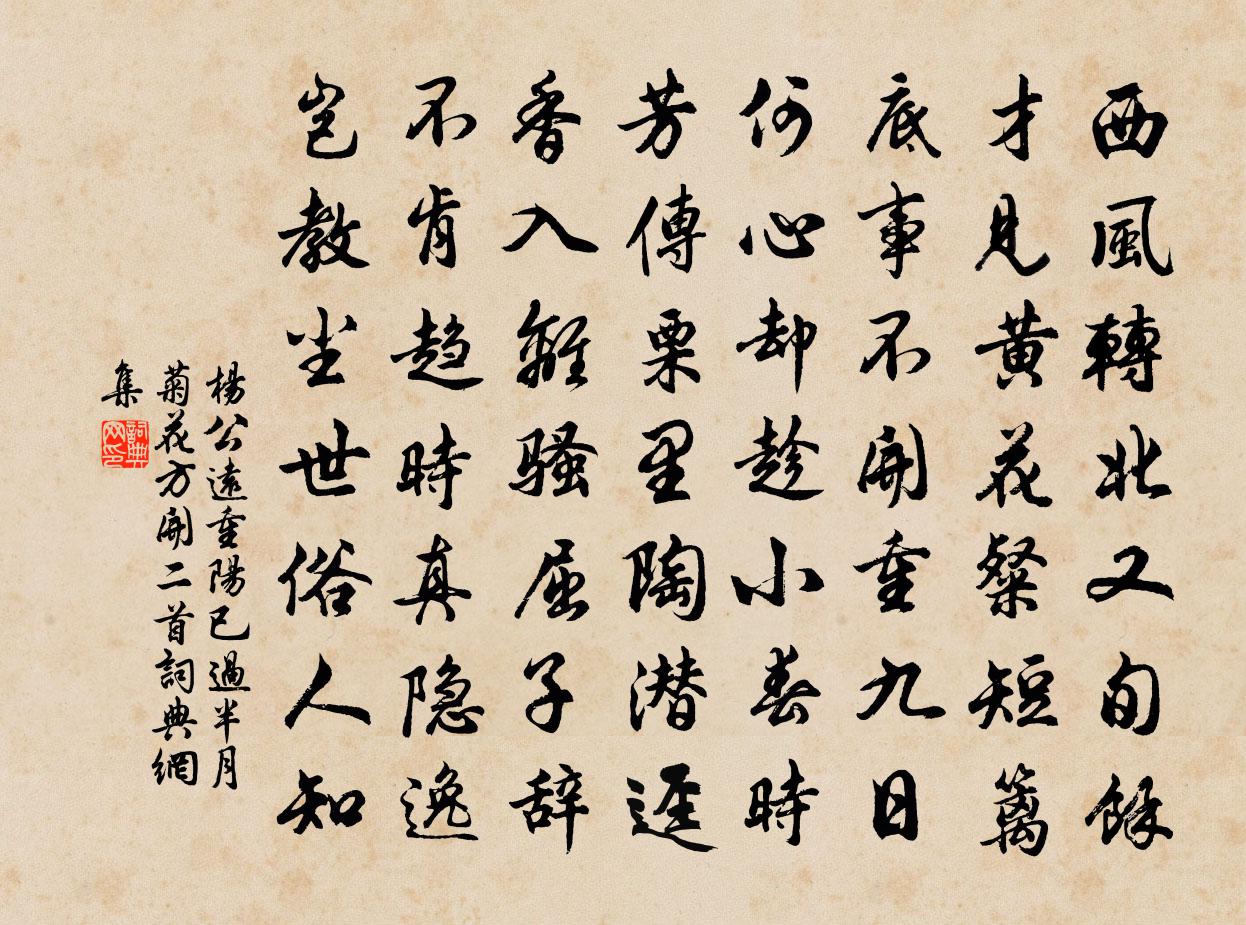 西風轉北又旬餘
才見黄花粲短篱
底事不開重九日
何心却趁小春時
芳傳栗里陶潜逕
香入離骚屈子辞
不肯趋時真隐逸
岂教尘世俗人知
楊公遠重陽已過半月
菊花方開二首詞典網
集
詞典
网印